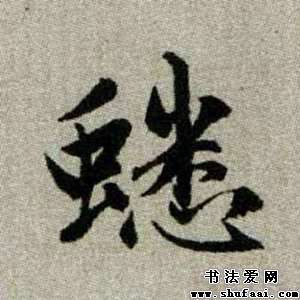 蟋
书法爱网
www.shufaai.com